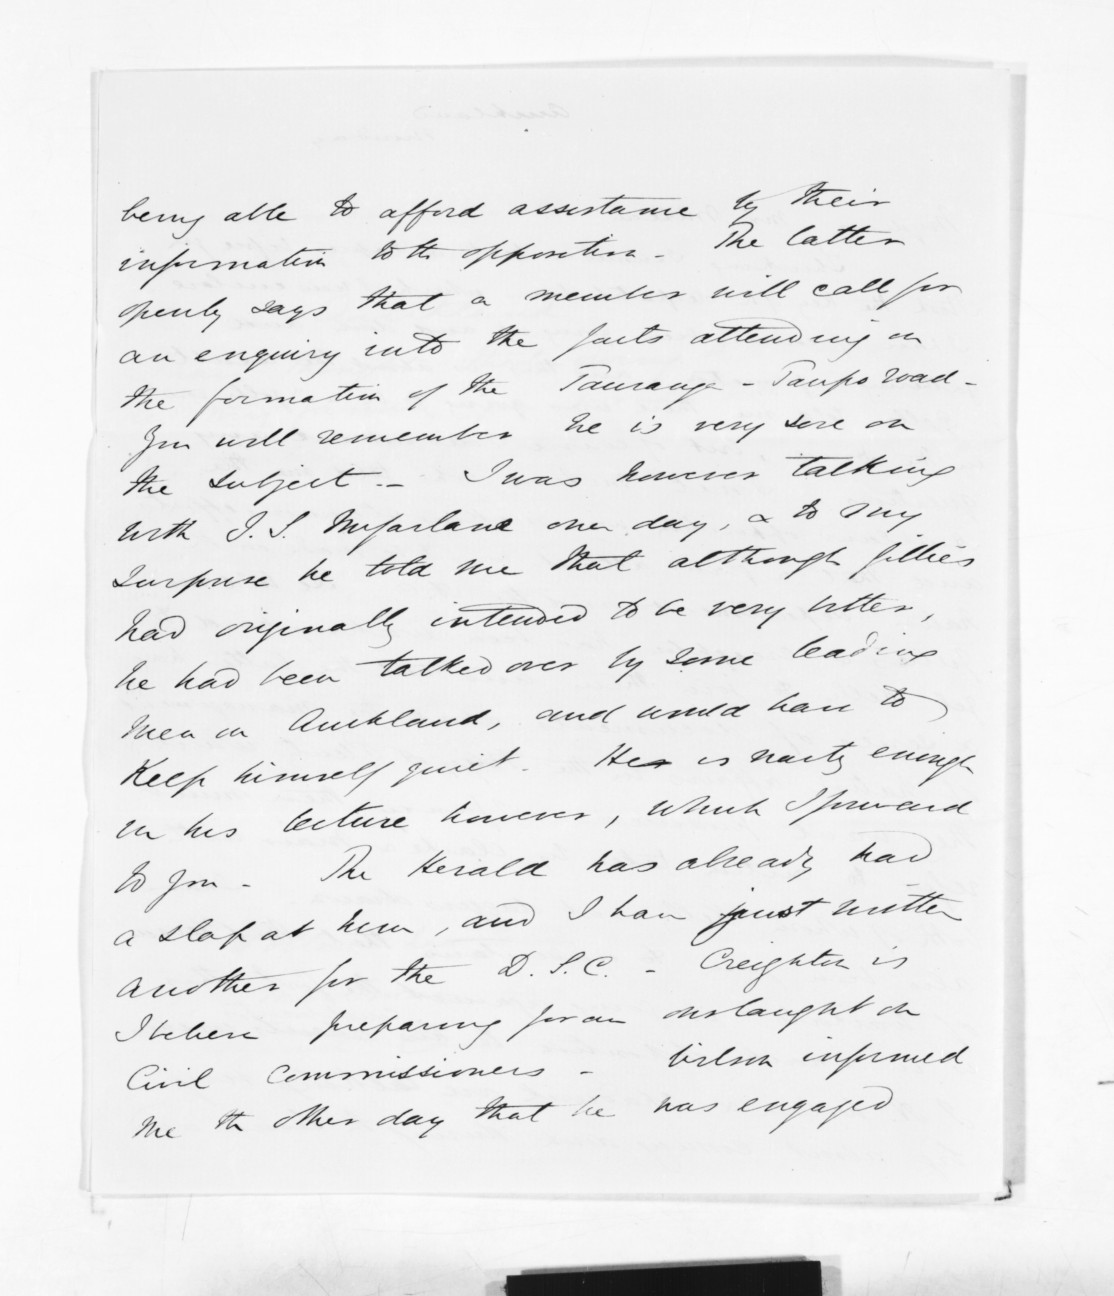 being able to afford assistance by their
information to th opposition - The latter
openly says that a member will call for
an enquiry into the facts attending on
the formation of the Tauranga - Taupo road -
You will remember he is very sore on
the subject. - I was however talking
with J. S. McFarlane one day, & to my
surprise he told me that although Gillies
had originally intended to be very bitter,
he had been talked over by some leading
men in Auckland, and would have to
keep himself quiet. He is nasty enough
in his lecture however, which I forward
to you - The Herald has already had
a slap at him, and I have just written
another for the D. S. C. - Creighton is
I believe preparing for an onslaught on
Civil Commissioners - informed
me th other day that he was engaged